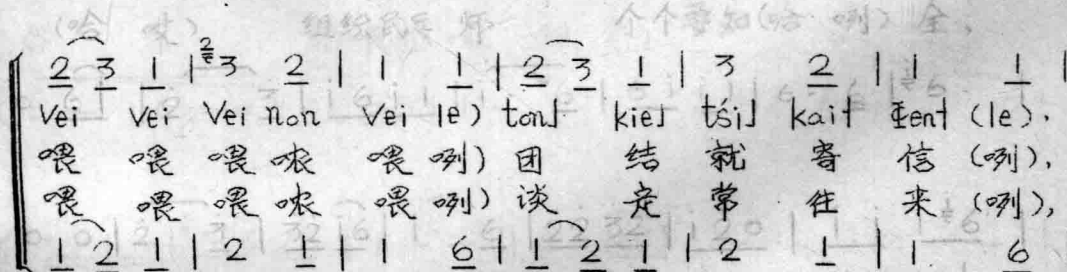 2 3 1 | 2 3 2 | 1 1 | 2 3 1 | 3 2 | 1 1 |
Vei Vei Vei non Vei le) ton˩ kie˧ tśi˩ kai˧ ɕen˧ (le).
喂 喂 喂 哝 喂 咧) 团 结 就 寄 信 (咧),
喂 喂 喂 哝 喂 咧) 谈 走 常 往 来 (咧),
1 2 1 | 2 1 | 1 6 | 1 2 1 | 2 1 | 1 6